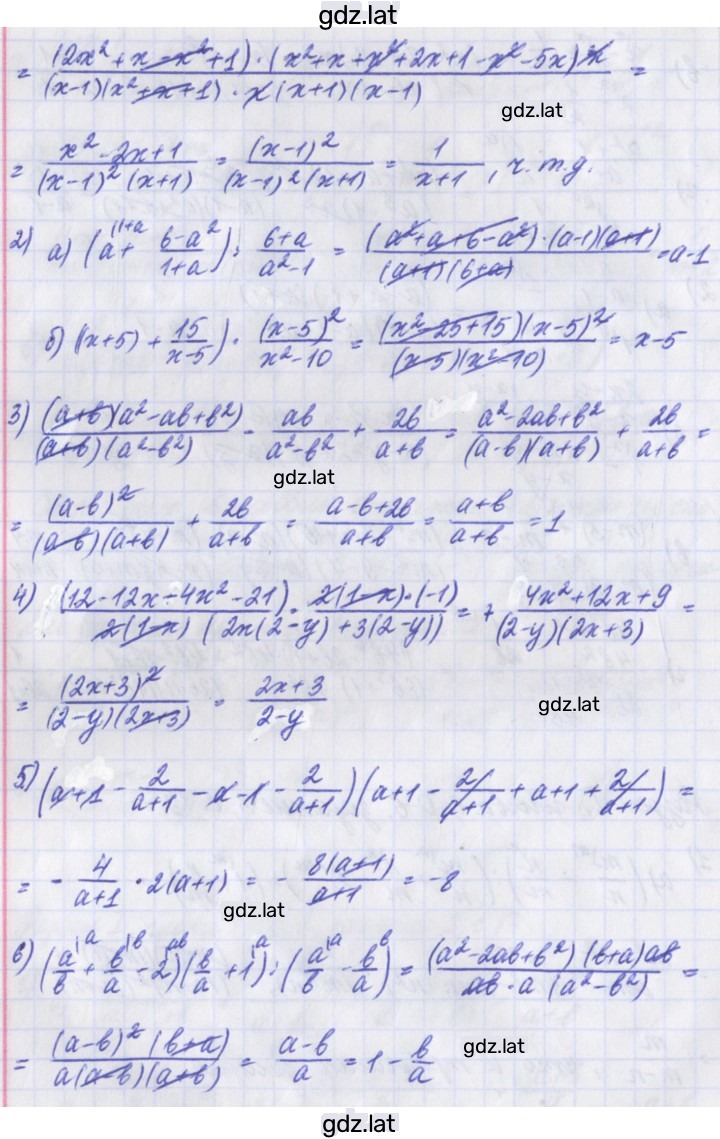 gdz.lat
= ((2x² + x - x² + 1) · (x² + x + x² + 2x + 1 - x² - 5x) · x) / ((x-1)(x² + x + 1) · x (x+1)(x-1)) =
gdz.lat
= (x² - 2x + 1) / ((x-1)² (x+1)) = (x-1)² / ((x-1)² (x+1)) = 1 / (x+1) , ч.т.д.
2) а) (a + (6-a²)/(1+a)) : (6+a)/(a²-1) = ((a² + a + 6 - a²) · (a-1)(a+1)) / ((a+1)(6+a)) = a-1
б) ((x+5) + 15/(x-5)) · (x-5)²/(x²-10) = ((x² - 25 + 15)(x-5)²) / ((x-5)(x²-10)) = x-5
3) ((a+b)(a² - ab + b²)) / ((a+b)(a² - b²)) - ab/(a² - b²) + 2b/(a+b) = (a² - 2ab + b²) / ((a-b)(a+b)) + 2b/(a+b) =
gdz.lat
= (a-b)² / ((a-b)(a+b)) + 2b/(a+b) = (a-b+2b)/(a+b) = (a+b)/(a+b) = 1
4) ((12 - 12x - 4x² - 21) · 2(1-x) · (-1)) / (2(1-x) (2x(2-y) + 3(2-y))) = + (4x² + 12x + 9) / ((2-y)(2x+3)) =
= (2x+3)² / ((2-y)(2x+3)) = (2x+3)/(2-y)
gdz.lat
5) (a+1 - 2/(a+1) - a - 1 - 2/(a+1)) (a+1 - 2/(a+1) + a+1 + 2/(a+1)) =
= - 4/(a+1) · 2(a+1) = - 8(a+1)/(a+1) = -8
gdz.lat
6) (a/b + b/a - 2)(b/a + 1) : (a/b - b/a) = ((a² - 2ab + b²) (b+a) ab) / (ab · a (a² - b²)) =
= ((a-b)² (b+a)) / (a(a-b)(a+b)) = (a-b)/a = 1 - b/a
gdz.lat
gdz.lat